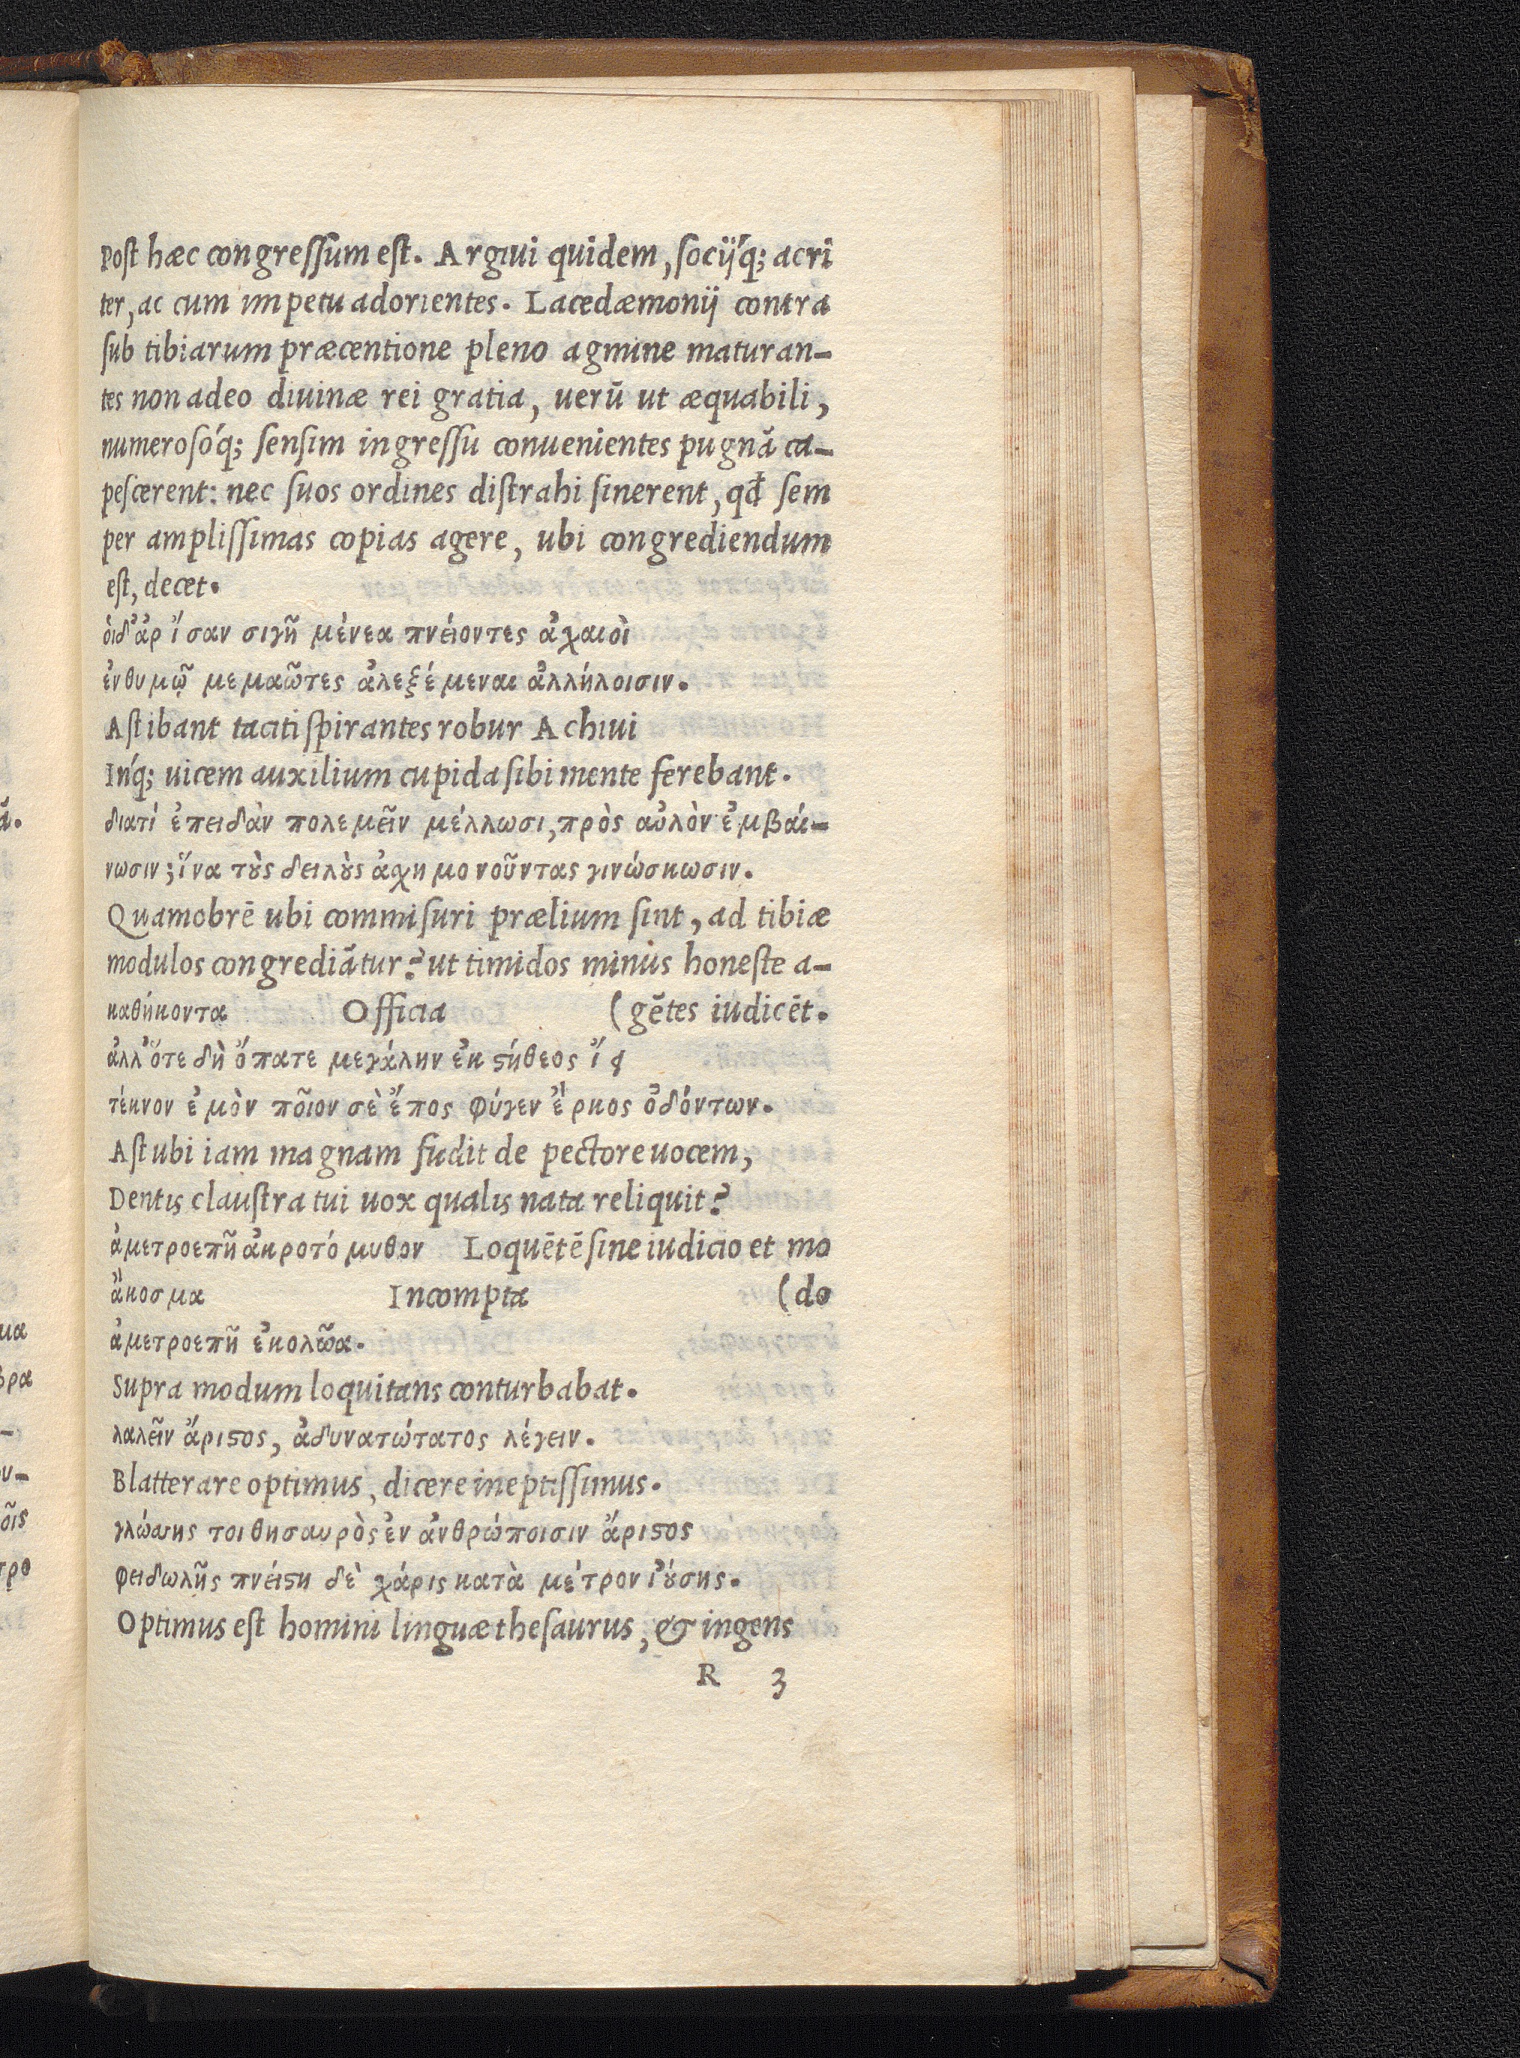 Post hæc congressum est. Argiui quidem, socijq́; acri
ter, ac cum impetu adorientes. Lacedæmonij contra
sub tibiarum præcentione pleno agmine maturan-
tes non adeo diuinæ rei gratia, uerū ut æquabili,
numerosoq́; sensim ingressu conuenientes pugnā ca-
pescerent: nec suos ordines distrahi sinerent, qđ sem
per amplissimas copias agere, ubi congrediendum
est, decet.
ὁιδ᾽ἀρ ἴσαν σιγῆ μένεα πνέιοντες ἀχαιοὶ
ἐνθυμῷ μεμαῶτες ἀλεξέμεναι ἀλλήλοισιν.
Astibant taciti spirantes robur Achiui
Inq́; uicem auxilium cupida sibi mente ferebant.
διατί ἐπειδὰν πολεμεῖν μέλλωσι, πρὸς αὐλὸν ἐμβάι-
νωσιν; ἵνα τȣ̀ς δειλȣ̀ς ἀχημονοῦντας γινώσκωσιν.
Quamobrē ubi commisuri prælium sint, ad tibiæ
modulos congrediātur? ut timidos minùs honeste a-
καθήκοντα Officia (gētes iudicēt.
ἀλλ᾽ὅτε δὴ ὄπατε μεγάλην ἐκ ϛήθεος
τέκνον ἐμὸν ποῖον σὲ ἔπος φύγεν ἕρκος ὀδόντων.
Ast ubi iam magnam fudit de pectore uocem,
Dentis claustra tui uox qualis nata reliquit?
ἀμετροεπῆ ἀκροτόμυθον Loquētē sine iudicio et mo
ἄκοσμα Incompta (do
ἀμετροεπῆ ἐκολῶα.
Supra modum loquitans conturbabat.
λαλεῖν ἄριϛος, ἀδυνατώτατος λέγειν.
Blatterare optimus, dicere ineptissimus.
γλώσης τοι θησαυρὸς ἐν ἀνθρώποισιν ἄριϛος
φειδωλῆς πλείϛη δὲ χάρις κατὰ μέτρον ἰȣ́σης.
Optimus est homini linguæ thesaurus, & ingens
R 3